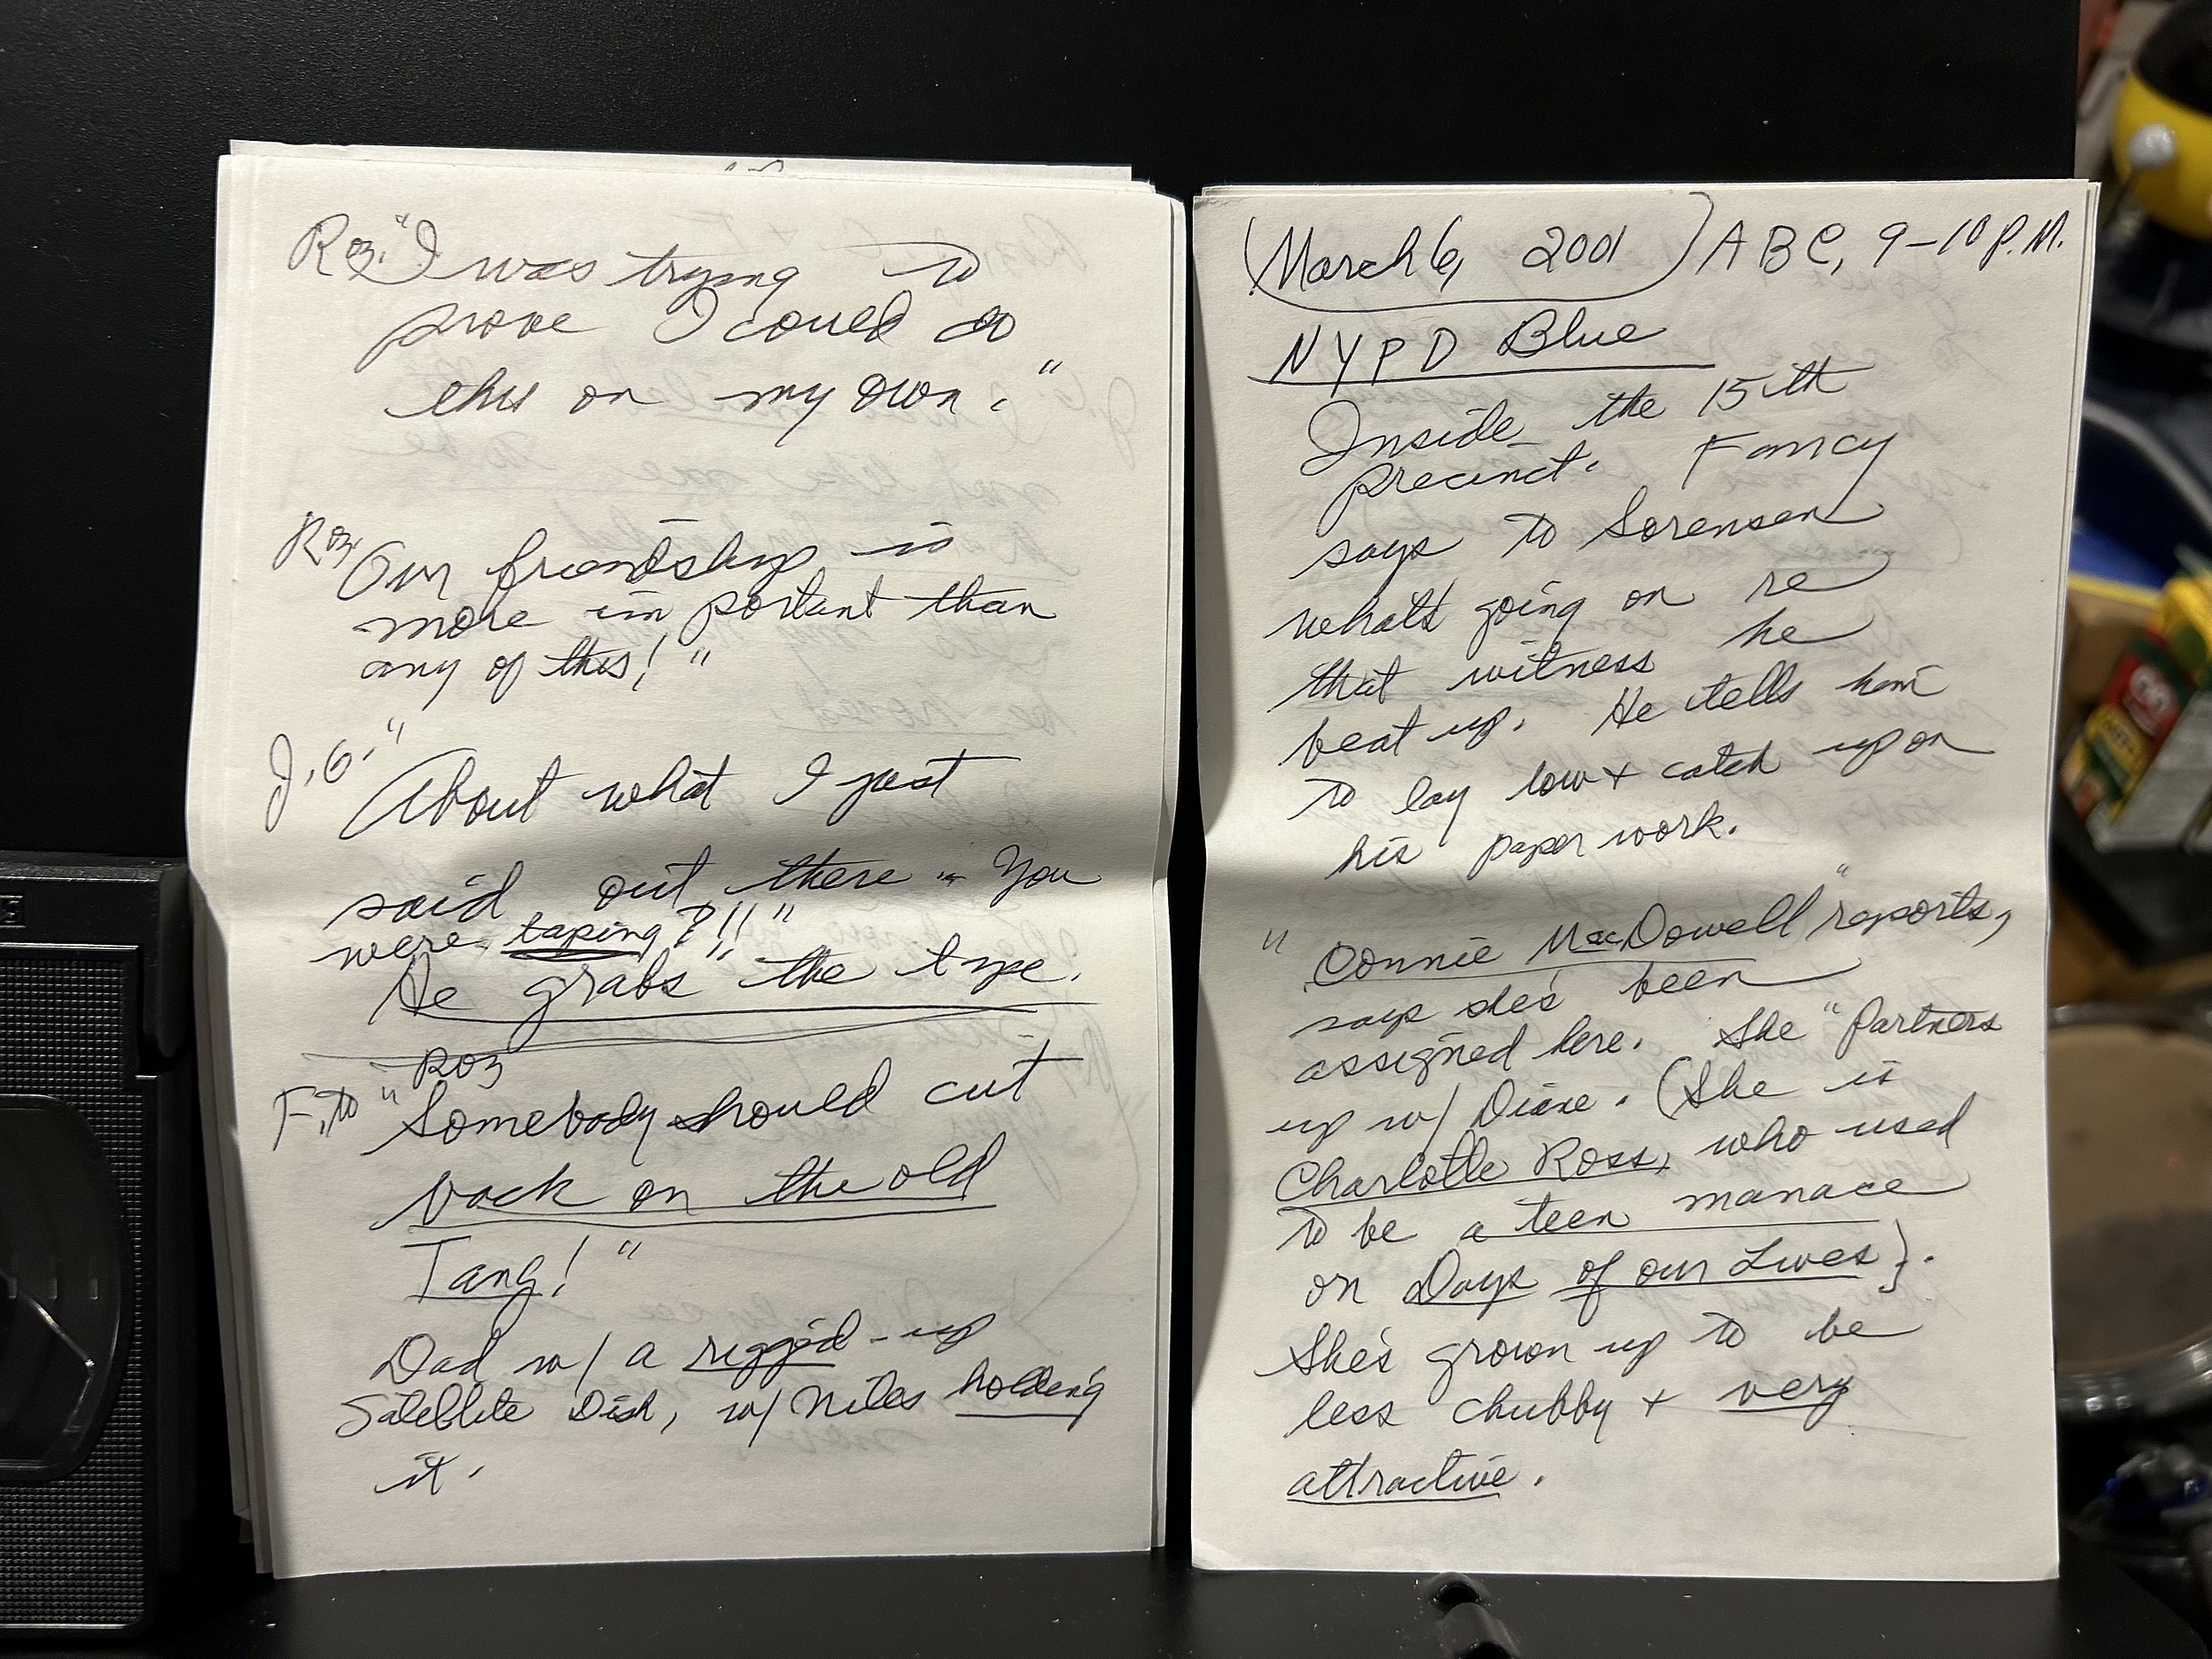 Roz: "I was trying to
prove I could do
this on my own."
Roz: Our friendship is
more important than
any of this!"
J.G. "About what I just
said out there - You
were taping?!!"
He "grabs" the tape.
F. to Roz
"Somebody should cut
back on the old
Tang!"
Dad w/ a rigged-up
Satellite Dish, w/ Niles holding
it.
March 6, 2001 ABC, 9-10 P.M.
NYPD Blue
Inside the 15th
precinct. Fancy
says to Sorensen
what's going on re
that witness he
beat up. He tells him
to lay low + catch up on
his paper work.
"Connie MacDowell" reports,
says she's been
assigned here. She "Partners
up w/ Diane. (She is
Charlotte Ross, who used
to be a teen manace
on Days of our Lives}.
She's grown up to be
less chubby + very
attractive.